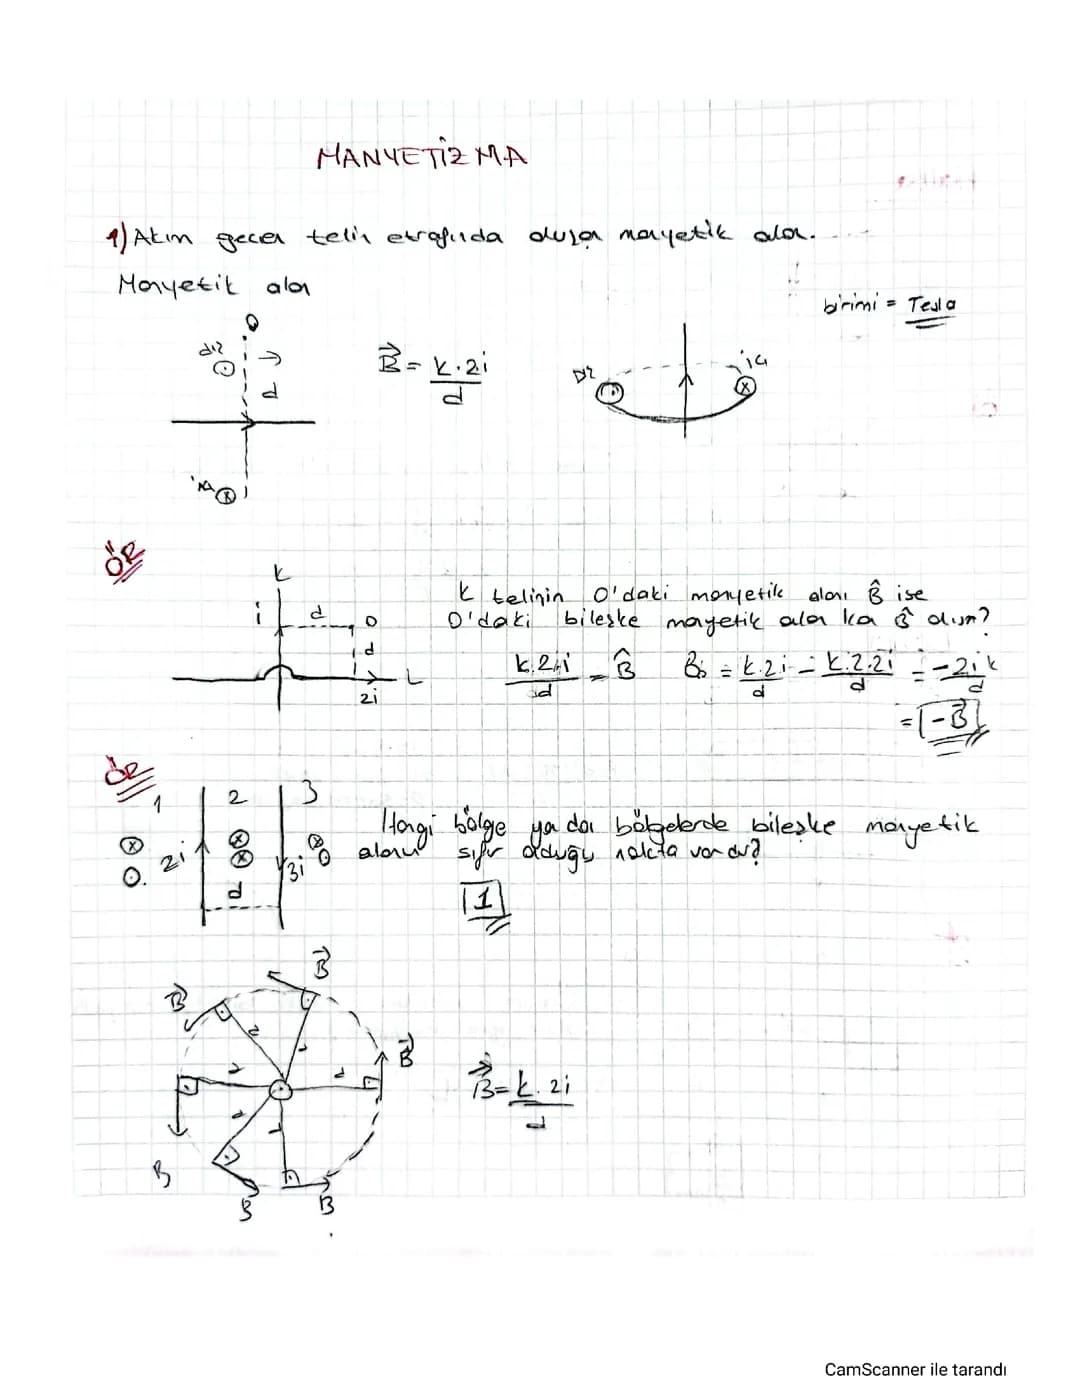 MANYETİZMA
1) Akım geçen telin etrafında oluşan manyetik alan.
Manyetik alan
birimi = Tesla
dış
d
B = k.2i / d
Dış
iç
ÖR
K
i
d
O
d
L
2i
K telinin O'daki manyetik alanı B ise
O'daki bileşke mayetik alan kaç B olur?
k.2i / d = B
Bo = k.2i / d - k.2.2i / d = -2ik / d
= -B
ÖR
1
2
3
2i
3i
d
Hangi bölge ya da bölgelerde bileşke manyetik
alanın sıfır olduğu nokta vardır?
1
B
B
B
d
d
d
d
d
d
B = k.2i / d
B
B
B
CamScanner ile tarandı